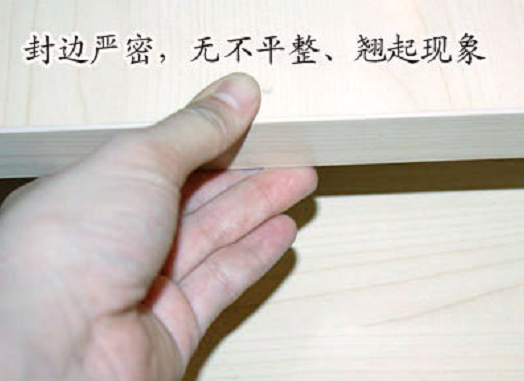 封边严密，无不平整、翘起现象